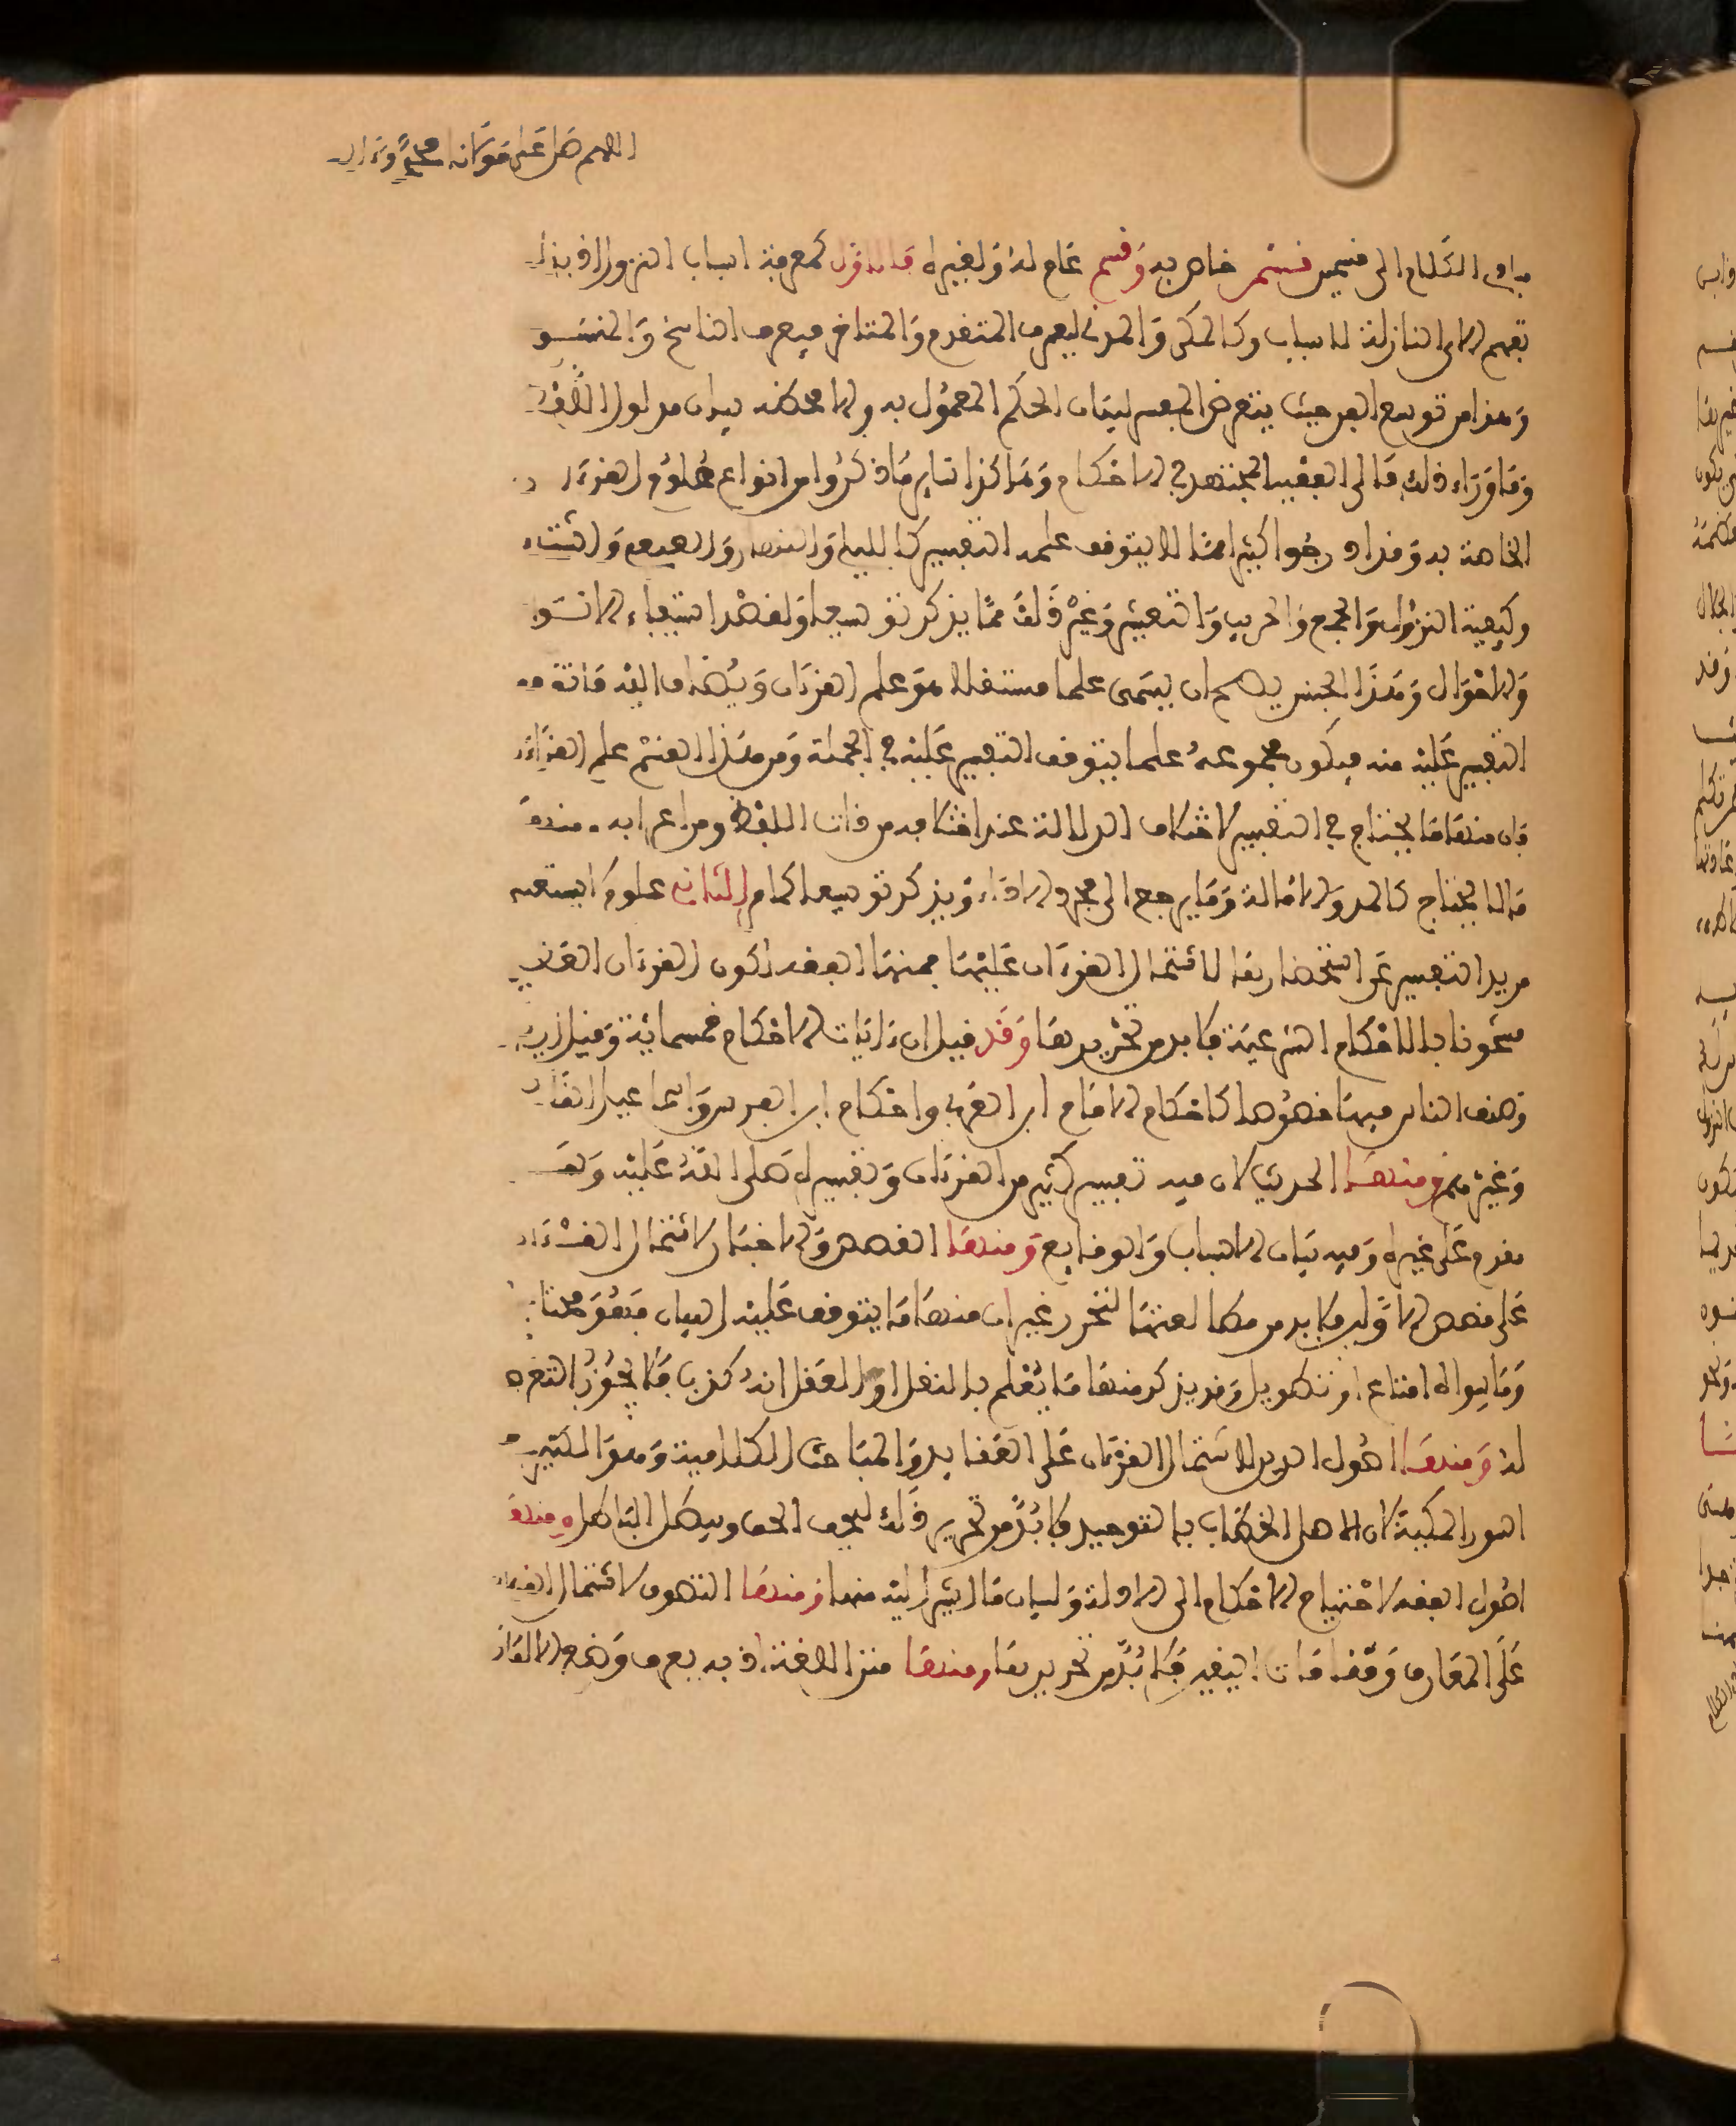 اللهم صل على مولانا محمد وءاله
الكلام الى قسمين قسم خاص به وقسم عام له ولغيره فالاول كمعرفة اسباب النزول اذ بذلك
تفهم الاي النازلة للاسباب وكالمكي والمدني ليعرف المتقدم والمتاخر فيعرف الناسخ والمنسو
وهذا من توسع الفن حيث يتعرض المفسر لبيان الحكم المعمول به والا فحظه بيان مدلول اللفظ
وما وراء ذلك فالى الفقيه المجتهد في الاحكام وهكذا سائر ما ذكروا من انواع علوم القرءان
الخاصة به وقد ادرجوا كثيرا مما لا يتوقف علمه التفسير كالليلي والنهاري والصيفي والشتاء
وكيفية النزول والجمع والحزب والتعشير وغير ذلك مما يذكر توسيعا ولقصد استيفاء الانسو
والاحوال وهذا الجنس يصح ان يسمى علما مستقلا هو علم القرءان ويضاف اليه ما توقف
التفسير عليه منه فيكون مجموعه علما يتوقف التفسير عليه في الجملة ومن هذا القسم علم القراءة
فان منها ما يحتاج في التفسير لاختلاف الدلالة عند اختلافه من ذات اللفظ ومن اعرابه ومنها
ما لا يحتاج كالمد والامالة وما يرجع الى مجرد الاداء ويذكر توسيعا كما مر الثاني علوم يستعين
مريد التفسير على استحضارها لاشتمال القرءان عليها فمنها الفقه لكون القرءان العظيم
مشحونا بالاحكام الشرعية فلا بد من تحريرها وقد قيل ان ءايات الاحكام خمسمائة وقيل ازيد
وصنف الناس فيها خصوصا كاحكام الامام ابن العربي واحكام ابن الفرس واسماعيل القا
وغيرهم ومنها الحديث لان فيه تفسير كثير من القرءان وتفسيره صلى الله عليه وسلم
مقدم على غيره وفيه بيان الاسباب والوقايع ومنها القصص والاخبار لاشتمال القرءان
على قصص الاولين فلا بد من مطالعتها لتحرر غير ان منها ما يتوقف عليه البيان فهو محتاج
وما سواه امتاع او تطويل وقد يذكر منها ما يعلم بالنقل او العقل انه كذب فلا يجوز التعرض
له ومنها اصول الدين لاشتمال القرءان على العقايد والمباحث الكلامية وهو الكثير في
السور المكية لان اصل الخطاب بالتوحيد فلا بد من تحرير ذلك ليحق الحق ويبطل الباطل ومنها
اصول الفقه لاحتياج الاحكام الى الادلة ولبيان ما اشير اليه منها ومنها التصوف لاشتمال القرءان
على المعارف ومقامات اليقين فلا بد من تحريرها ومنها متن اللغة اذ به يعرف وضع الالفاظ